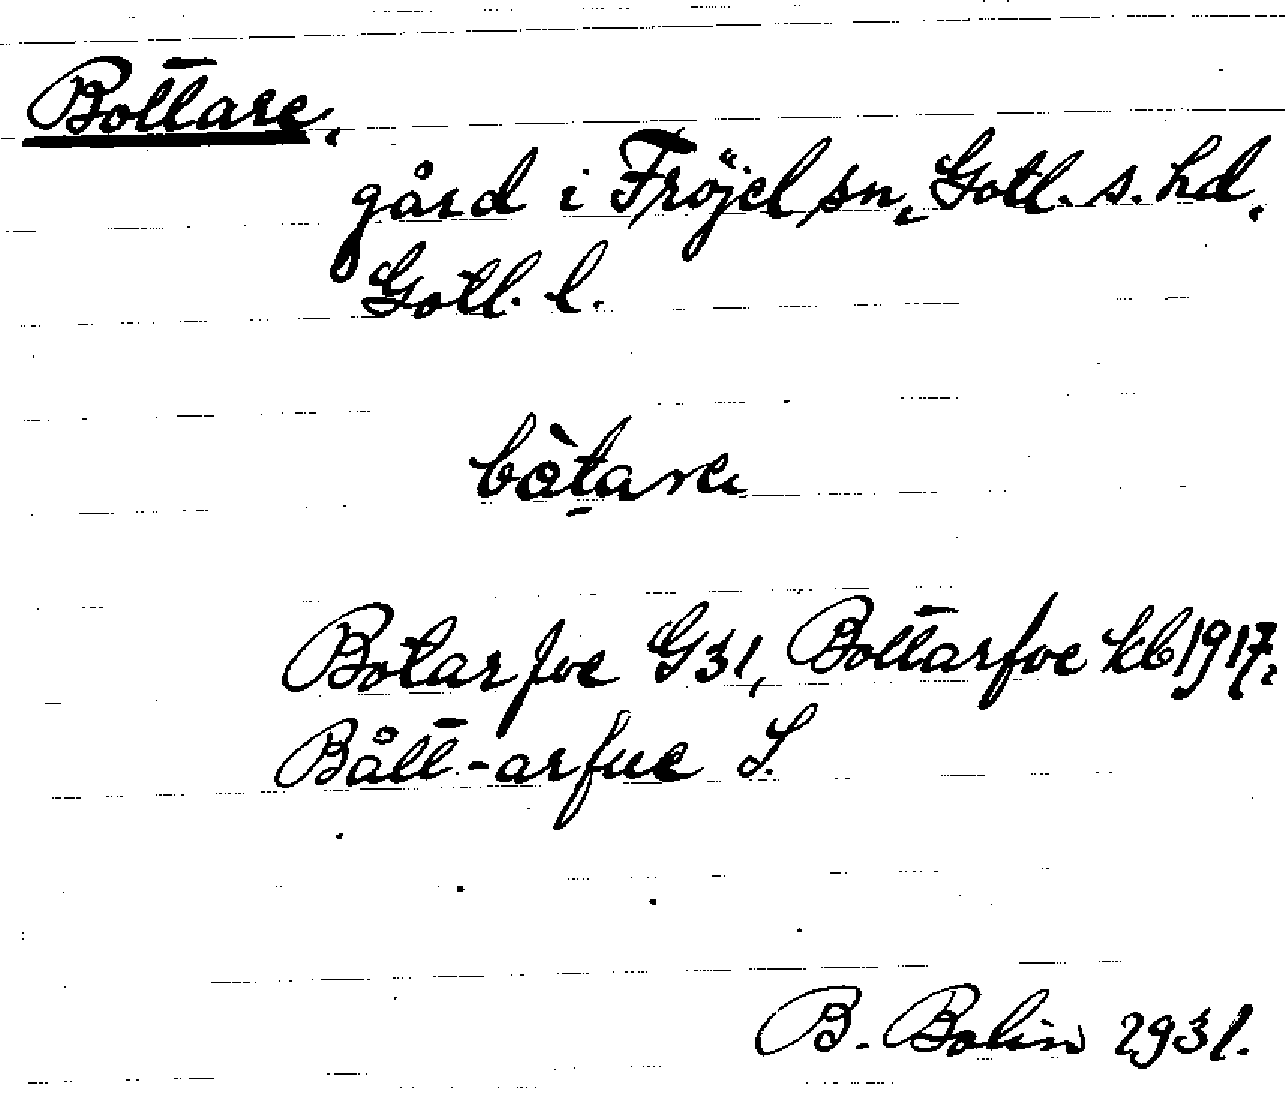 Bottare.
gård i Fröjel sn, Gotl. s. hd.
Gotl. l.
bòtare
Botarfve G31, Bottarfve kb 1917.
Bått-arfue S.
B. Bolin 1931.